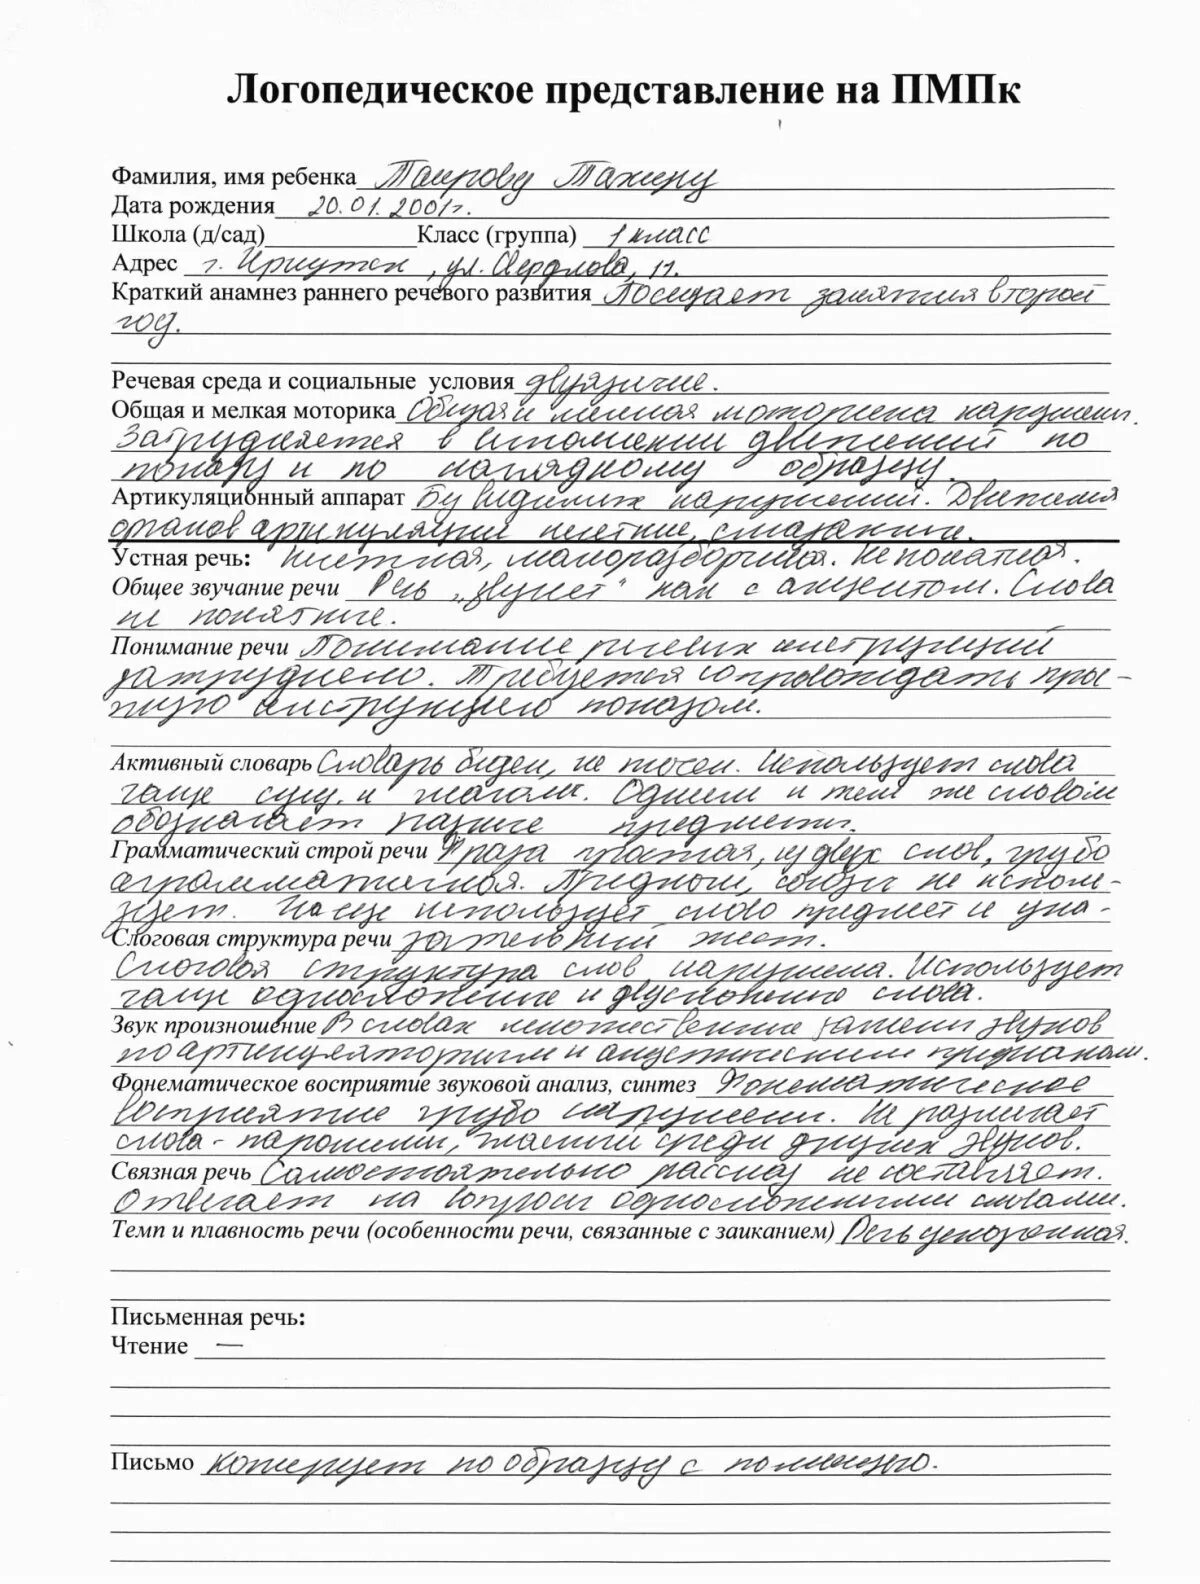 Логопедическое представление на ПМПк
Фамилия, имя ребенка Таирову Тахиру
Дата рождения 20.01.2001г.
Школа (д/сад) Класс (группа) 1 класс
Адрес г. Иркутск, ул. Свердлова, 11.
Краткий анамнез раннего речевого развития Посещает занятия второй
год.
Речевая среда и социальные условия двуязычие.
Общая и мелкая моторика Общая и мелкая моторика нарушены.
Затрудняется в исполнении движений по
показу и по наглядному образцу.
Артикуляционный аппарат Без видимых нарушений. Движения
органов артикуляции нечеткие, смазанные.
Устная речь: Нечеткая, малоразборчивая. Не понятная.
Общее звучание речи Речь „звучит" как с акцентом. Слова
не понятные.
Понимание речи Понимание речевых инструкций
затруднено. Требуется сопровождать
инструкцию показом.
Активный словарь Словарь беден, не точен. Использует слова
чаще сущ. и глаголы. Одним и тем же словом
обозначает разные предметы.
Грамматический строй речи Фраза простая, из двух слов, грубо
аграмматичная. Предлоги, союзы не исполь-
зует. Чаще использует слово предмет и ука-
Слоговая структура речи зательный жест.
Слоговая структура слов нарушена. Использует
чаще односложные и двусложные слова.
Звук произношение В словах множественные замены звуков
по артикуляторным и акустическим признакам.
Фонематическое восприятие звуковой анализ, синтез Фонематическое
восприятие грубо нарушено. Не различает
слова-паронимы, гласный среди других звуков.
Связная речь Самостоятельно рассказ не составляет.
Отвечает на вопросы односложными словами.
Темп и плавность речи (особенности речи, связанные с заиканием) Речь ускоренная.
Письменная речь:
Чтение —
Письмо копирует по образцу с помощью.